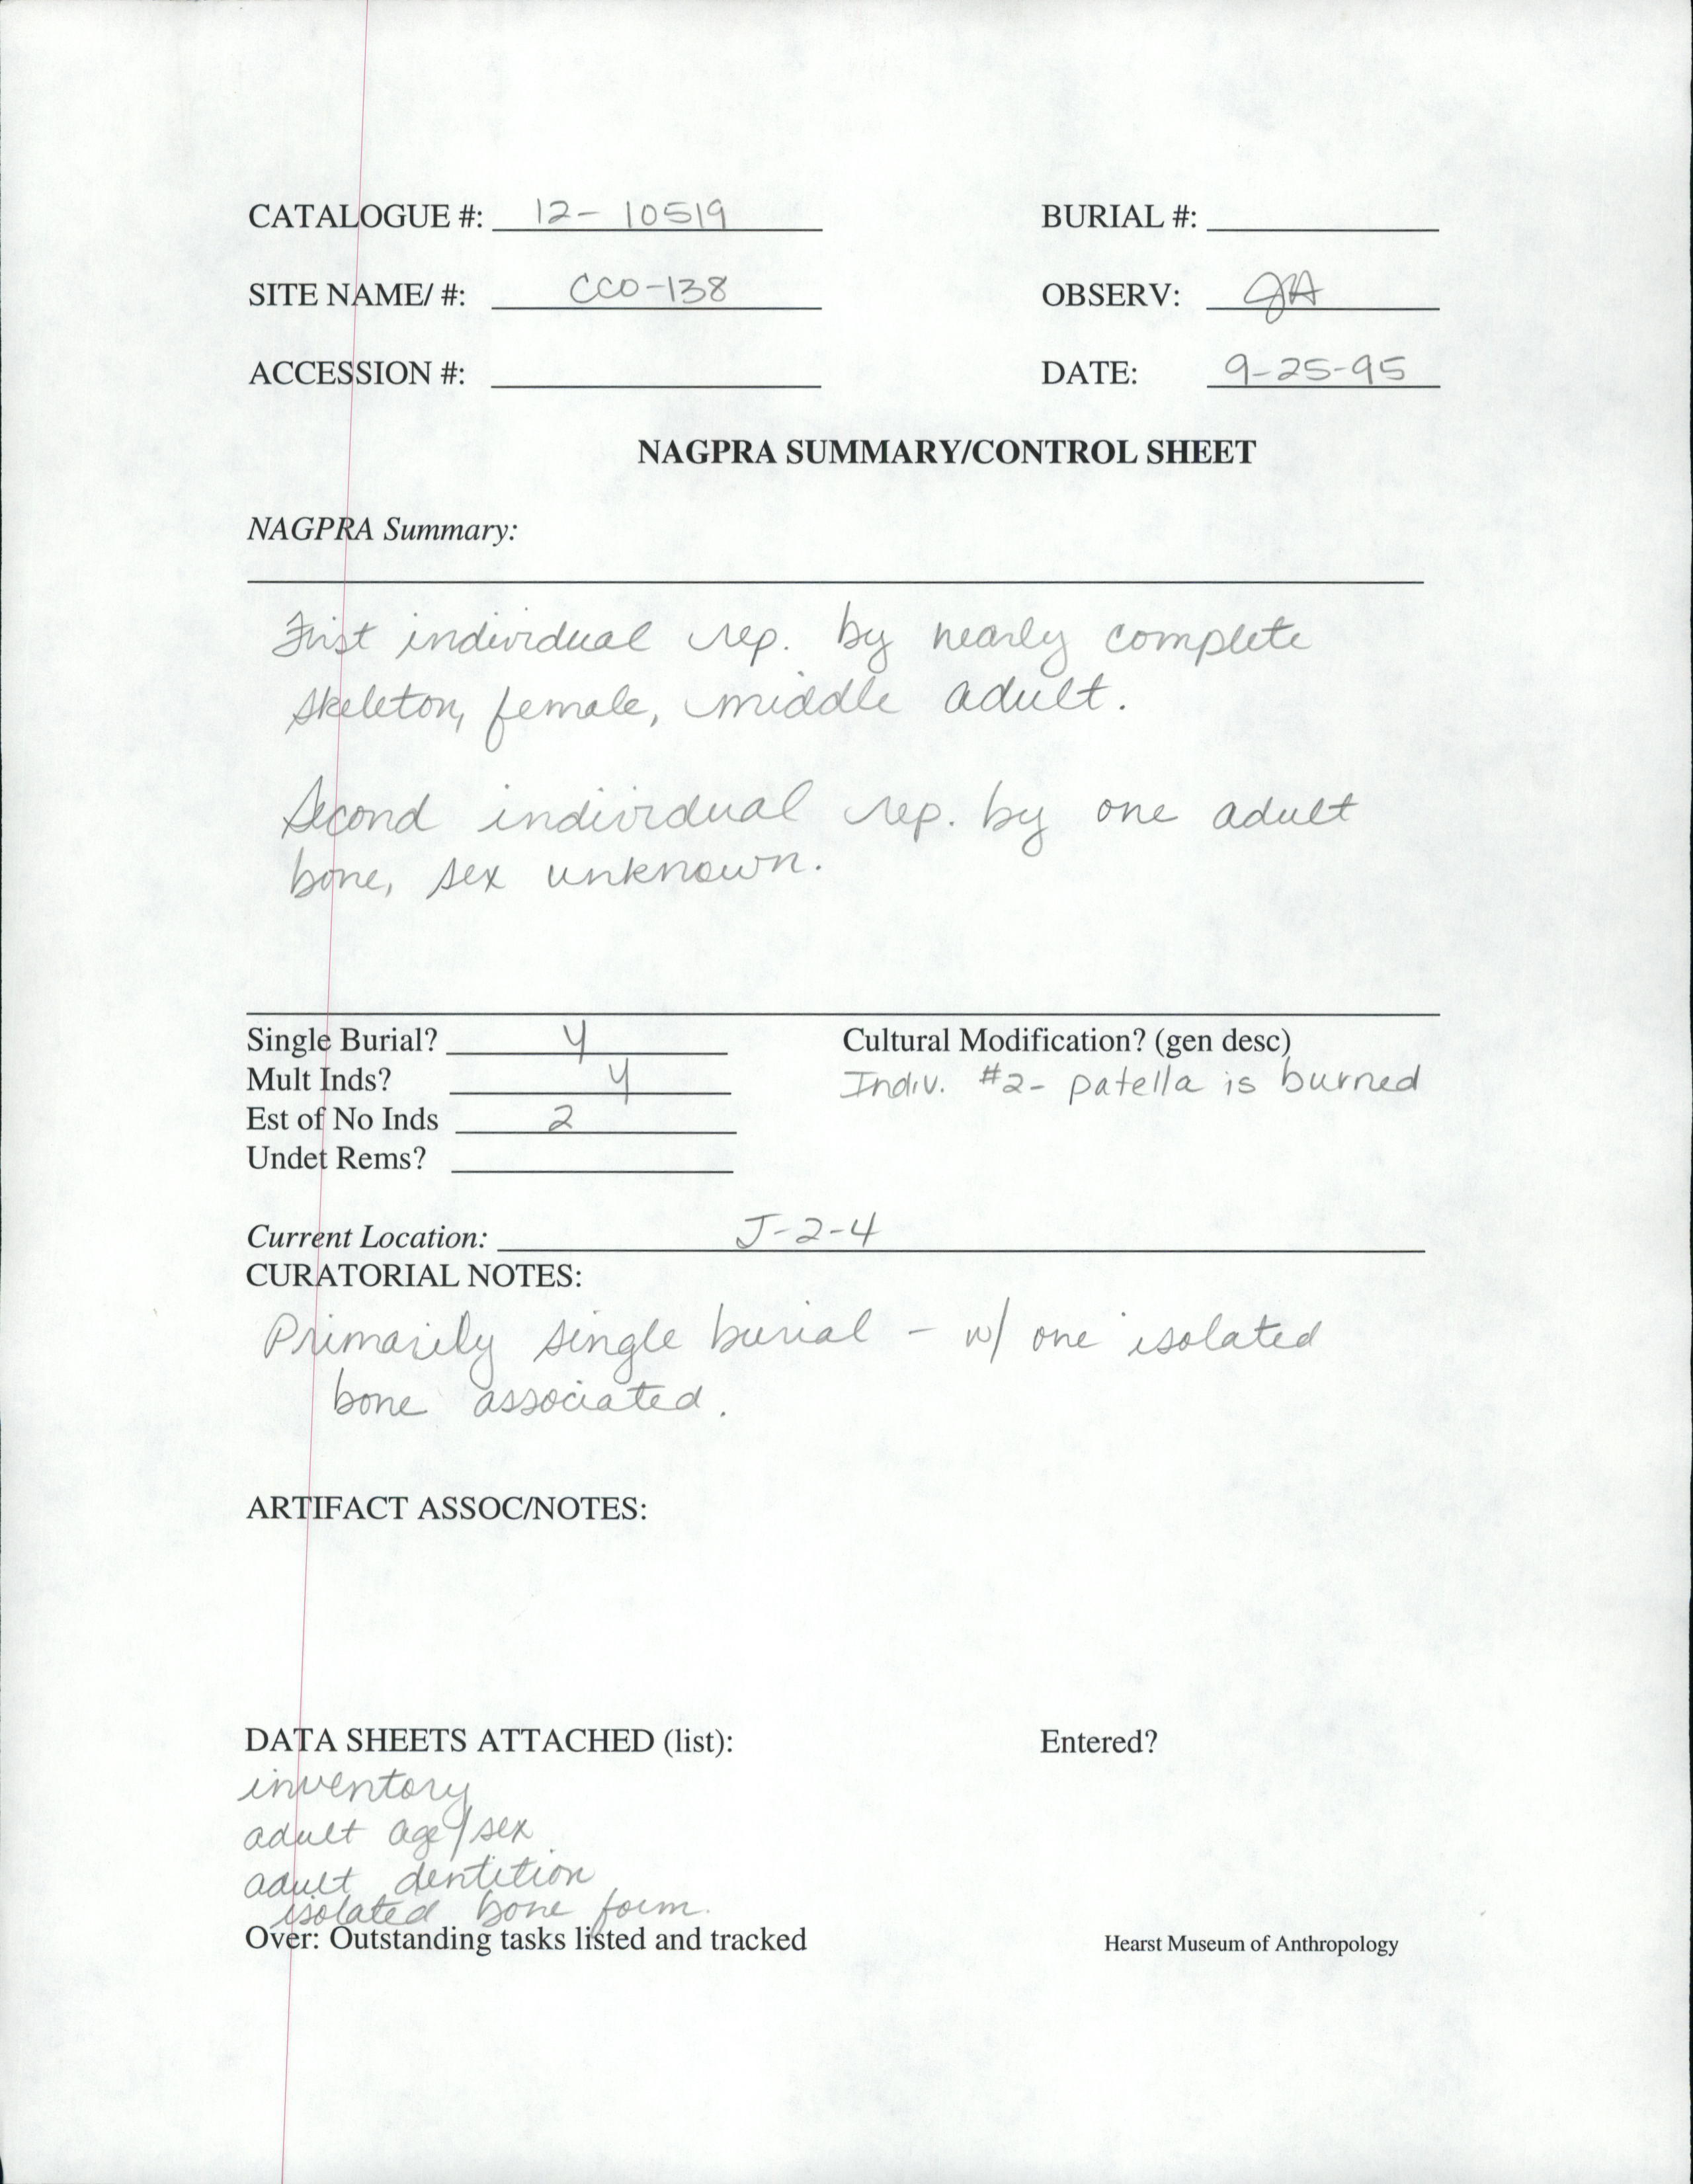 CATALOGUE #: 12-10519 BURIAL #:
SITE NAME/ #: CCO-138 OBSERV: JA
ACCESSION #: DATE: 9-25-95
NAGPRA SUMMARY/CONTROL SHEET
NAGPRA Summary:
First individual rep. by nearly complete
skeleton, female, middle adult.
Second individual rep. by one adult
bone, sex unknown.
Single Burial? y Cultural Modification? (gen desc)
Mult Inds? y Indiv. #2- patella is burned
Est of No Inds 2
Undet Rems?
Current Location: J-2-4
CURATORIAL NOTES:
Primarily single burial - w/ one isolated
bone associated.
ARTIFACT ASSOC/NOTES:
DATA SHEETS ATTACHED (list): Entered?
inventory
adult age/sex
adult dentition
isolated bone form.
Over: Outstanding tasks listed and tracked Hearst Museum of Anthropology